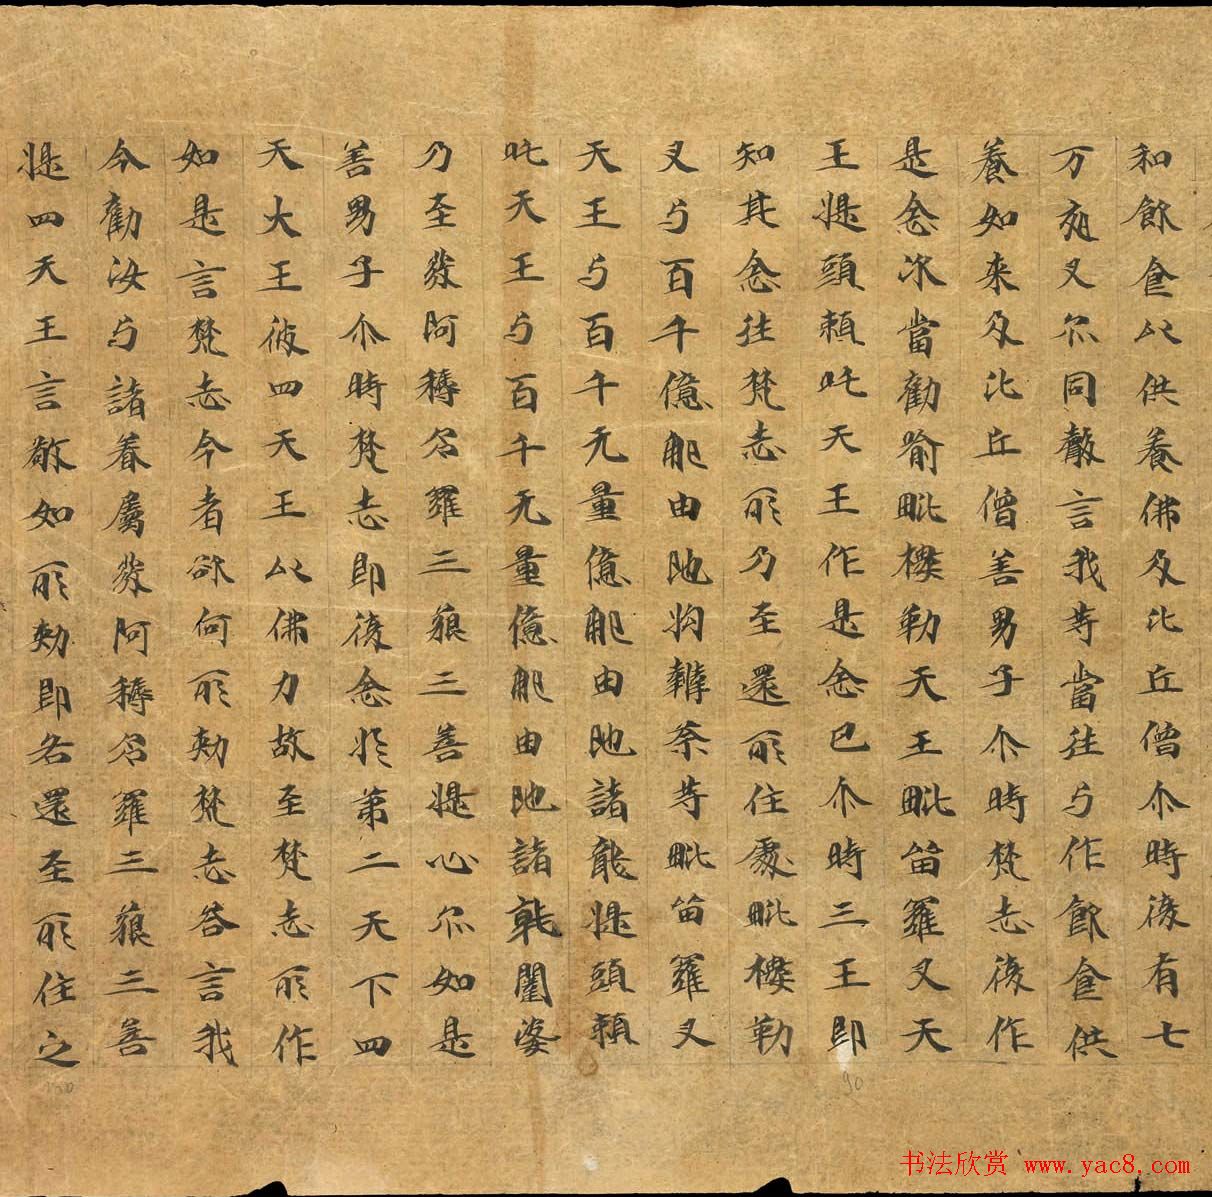 和飲食以供養佛及比丘僧尒時復有七
万夜叉亦同聲言我等當往与作飲食供
養如来及比丘僧善男子尒時梵志復作
是念次當勸喻毗樓勒天王毗留羅叉天
王提頭賴吒天王作是念已尒時三王即
知其念往梵志所乃至還所住處毗樓勒
叉与百千億那由他拘辯荼等毗留羅叉
天王与百千无量億那由他諸龍提頭賴
吒天王与百千无量億那由他諸乾闥婆
乃至發阿耨多羅三藐三菩提心亦如是
善男子尒時梵志即復念於第二天下四
天大王彼四天王以佛力故至梵志所作
如是言梵志今者欲何所勑梵志答言我
今勸汝与諸眷屬發阿耨多羅三藐三菩
提四天王言敬如所勑即各還至所住之
90
书法欣赏 www.yac8.com